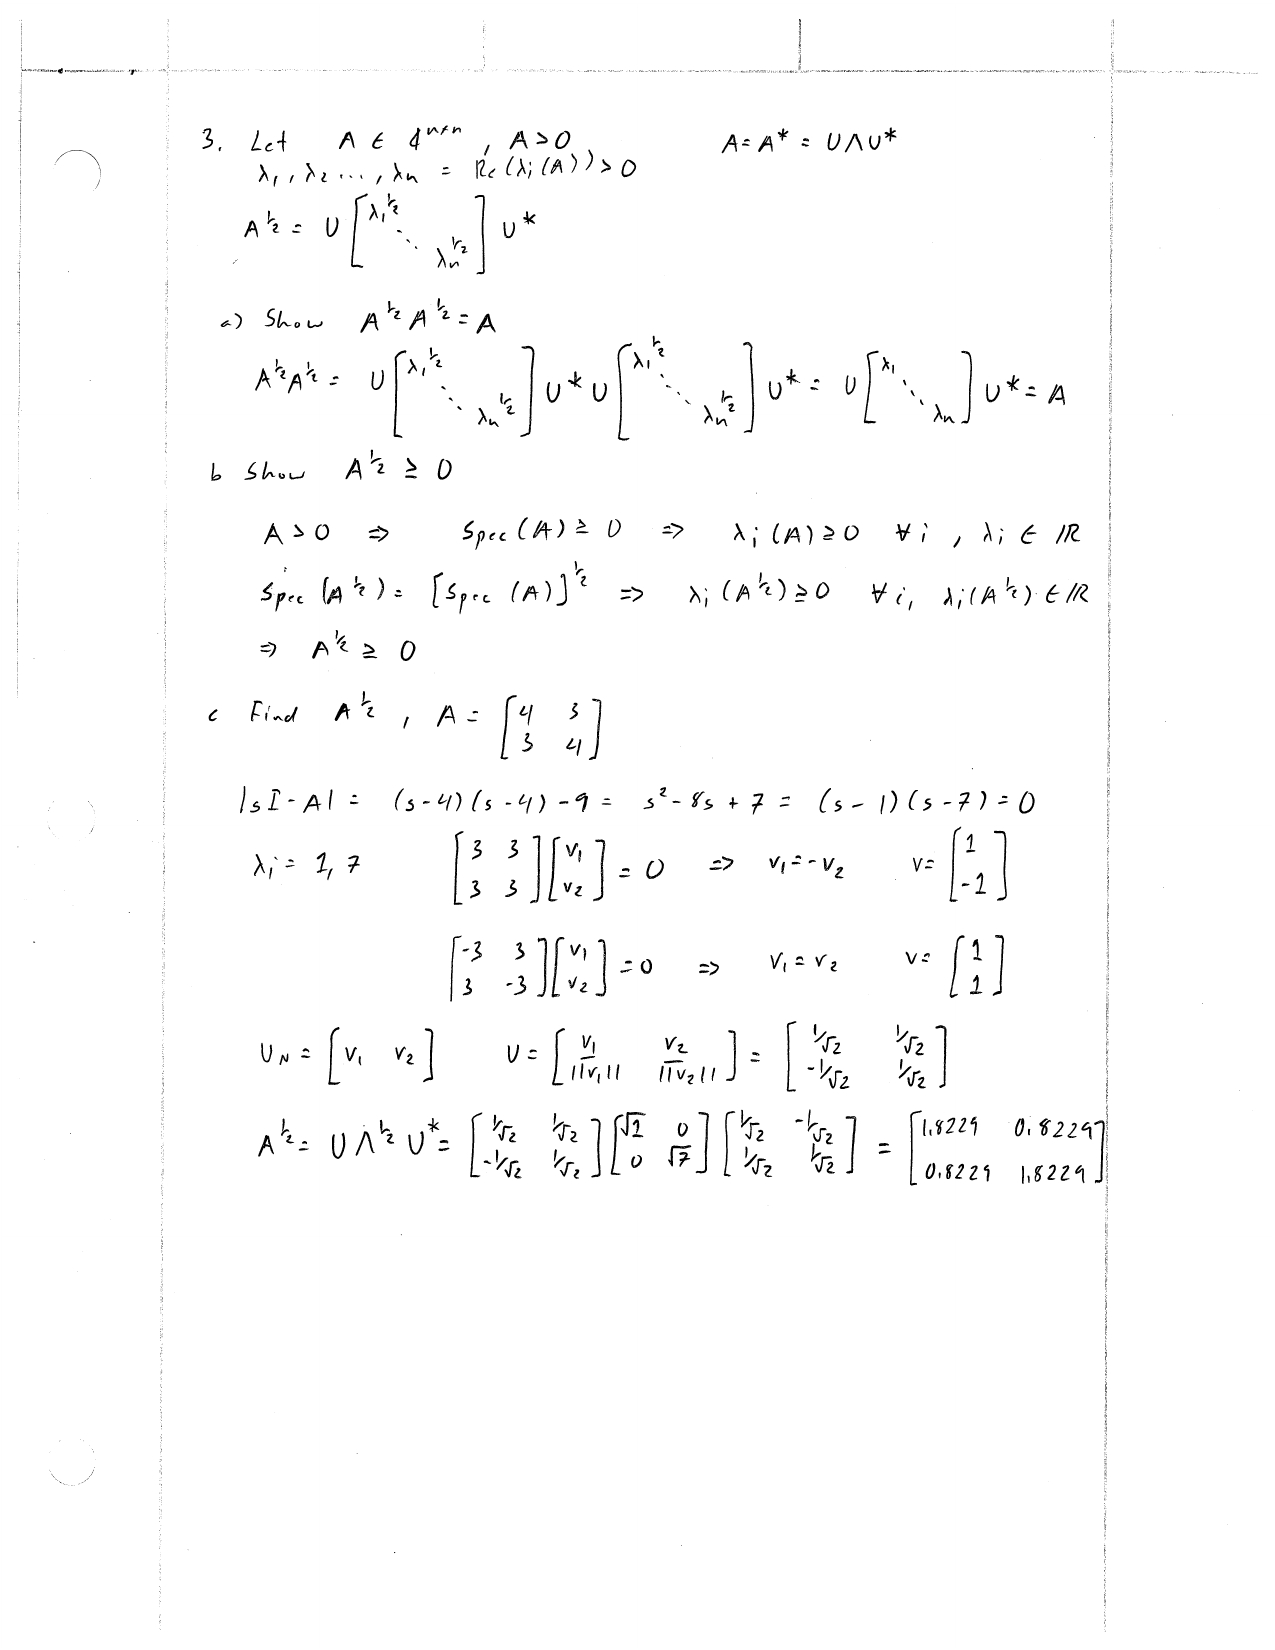 3. Let A ∈ ℂ^{n×n}, A>0    A = A* = UΛU*
λ₁, λ₂ ..., λn = Re(λi(A)) > 0
A^{1/2} = U [λ₁^{1/2} ⋱ λn^{1/2}] U*
a) Show A^{1/2} A^{1/2} = A
A^{1/2}A^{1/2} = U [λ₁^{1/2} ⋱ λn^{1/2}] U* U [λ₁^{1/2} ⋱ λn^{1/2}] U* = U [λ₁ ⋱ λn] U* = A
b Show A^{1/2} ≥ 0
A > 0 ⇒ Spec(A) ≥ 0 ⇒ λi(A) ≥ 0 ∀i, λi ∈ ℝ
Spec(A^{1/2}) = [Spec(A)]^{1/2} ⇒ λi(A^{1/2}) ≥ 0 ∀i, λi(A^{1/2}) ∈ ℝ
⇒ A^{1/2} ≥ 0
c Find A^{1/2}, A = [4 3; 3 4]
|sI-A| = (s-4)(s-4)-9 = s²-8s+7 = (s-1)(s-7) = 0
λi = 1, 7    [3 3; 3 3][v₁; v₂] = 0 ⇒ v₁ = -v₂    v = [1; -1]
[-3 3; 3 -3][v₁; v₂] = 0 ⇒ v₁ = v₂    v = [1; 1]
U_N = [v₁ v₂]    U = [v₁/||v₁|| v₂/||v₂||] = [1/√2 1/√2; -1/√2 1/√2]
A^{1/2} = UΛ^{1/2}U* = [1/√2 1/√2; -1/√2 1/√2][√1 0; 0 √7][1/√2 -1/√2; 1/√2 1/√2] = [1.8229 0.8229; 0.8229 1.8229]